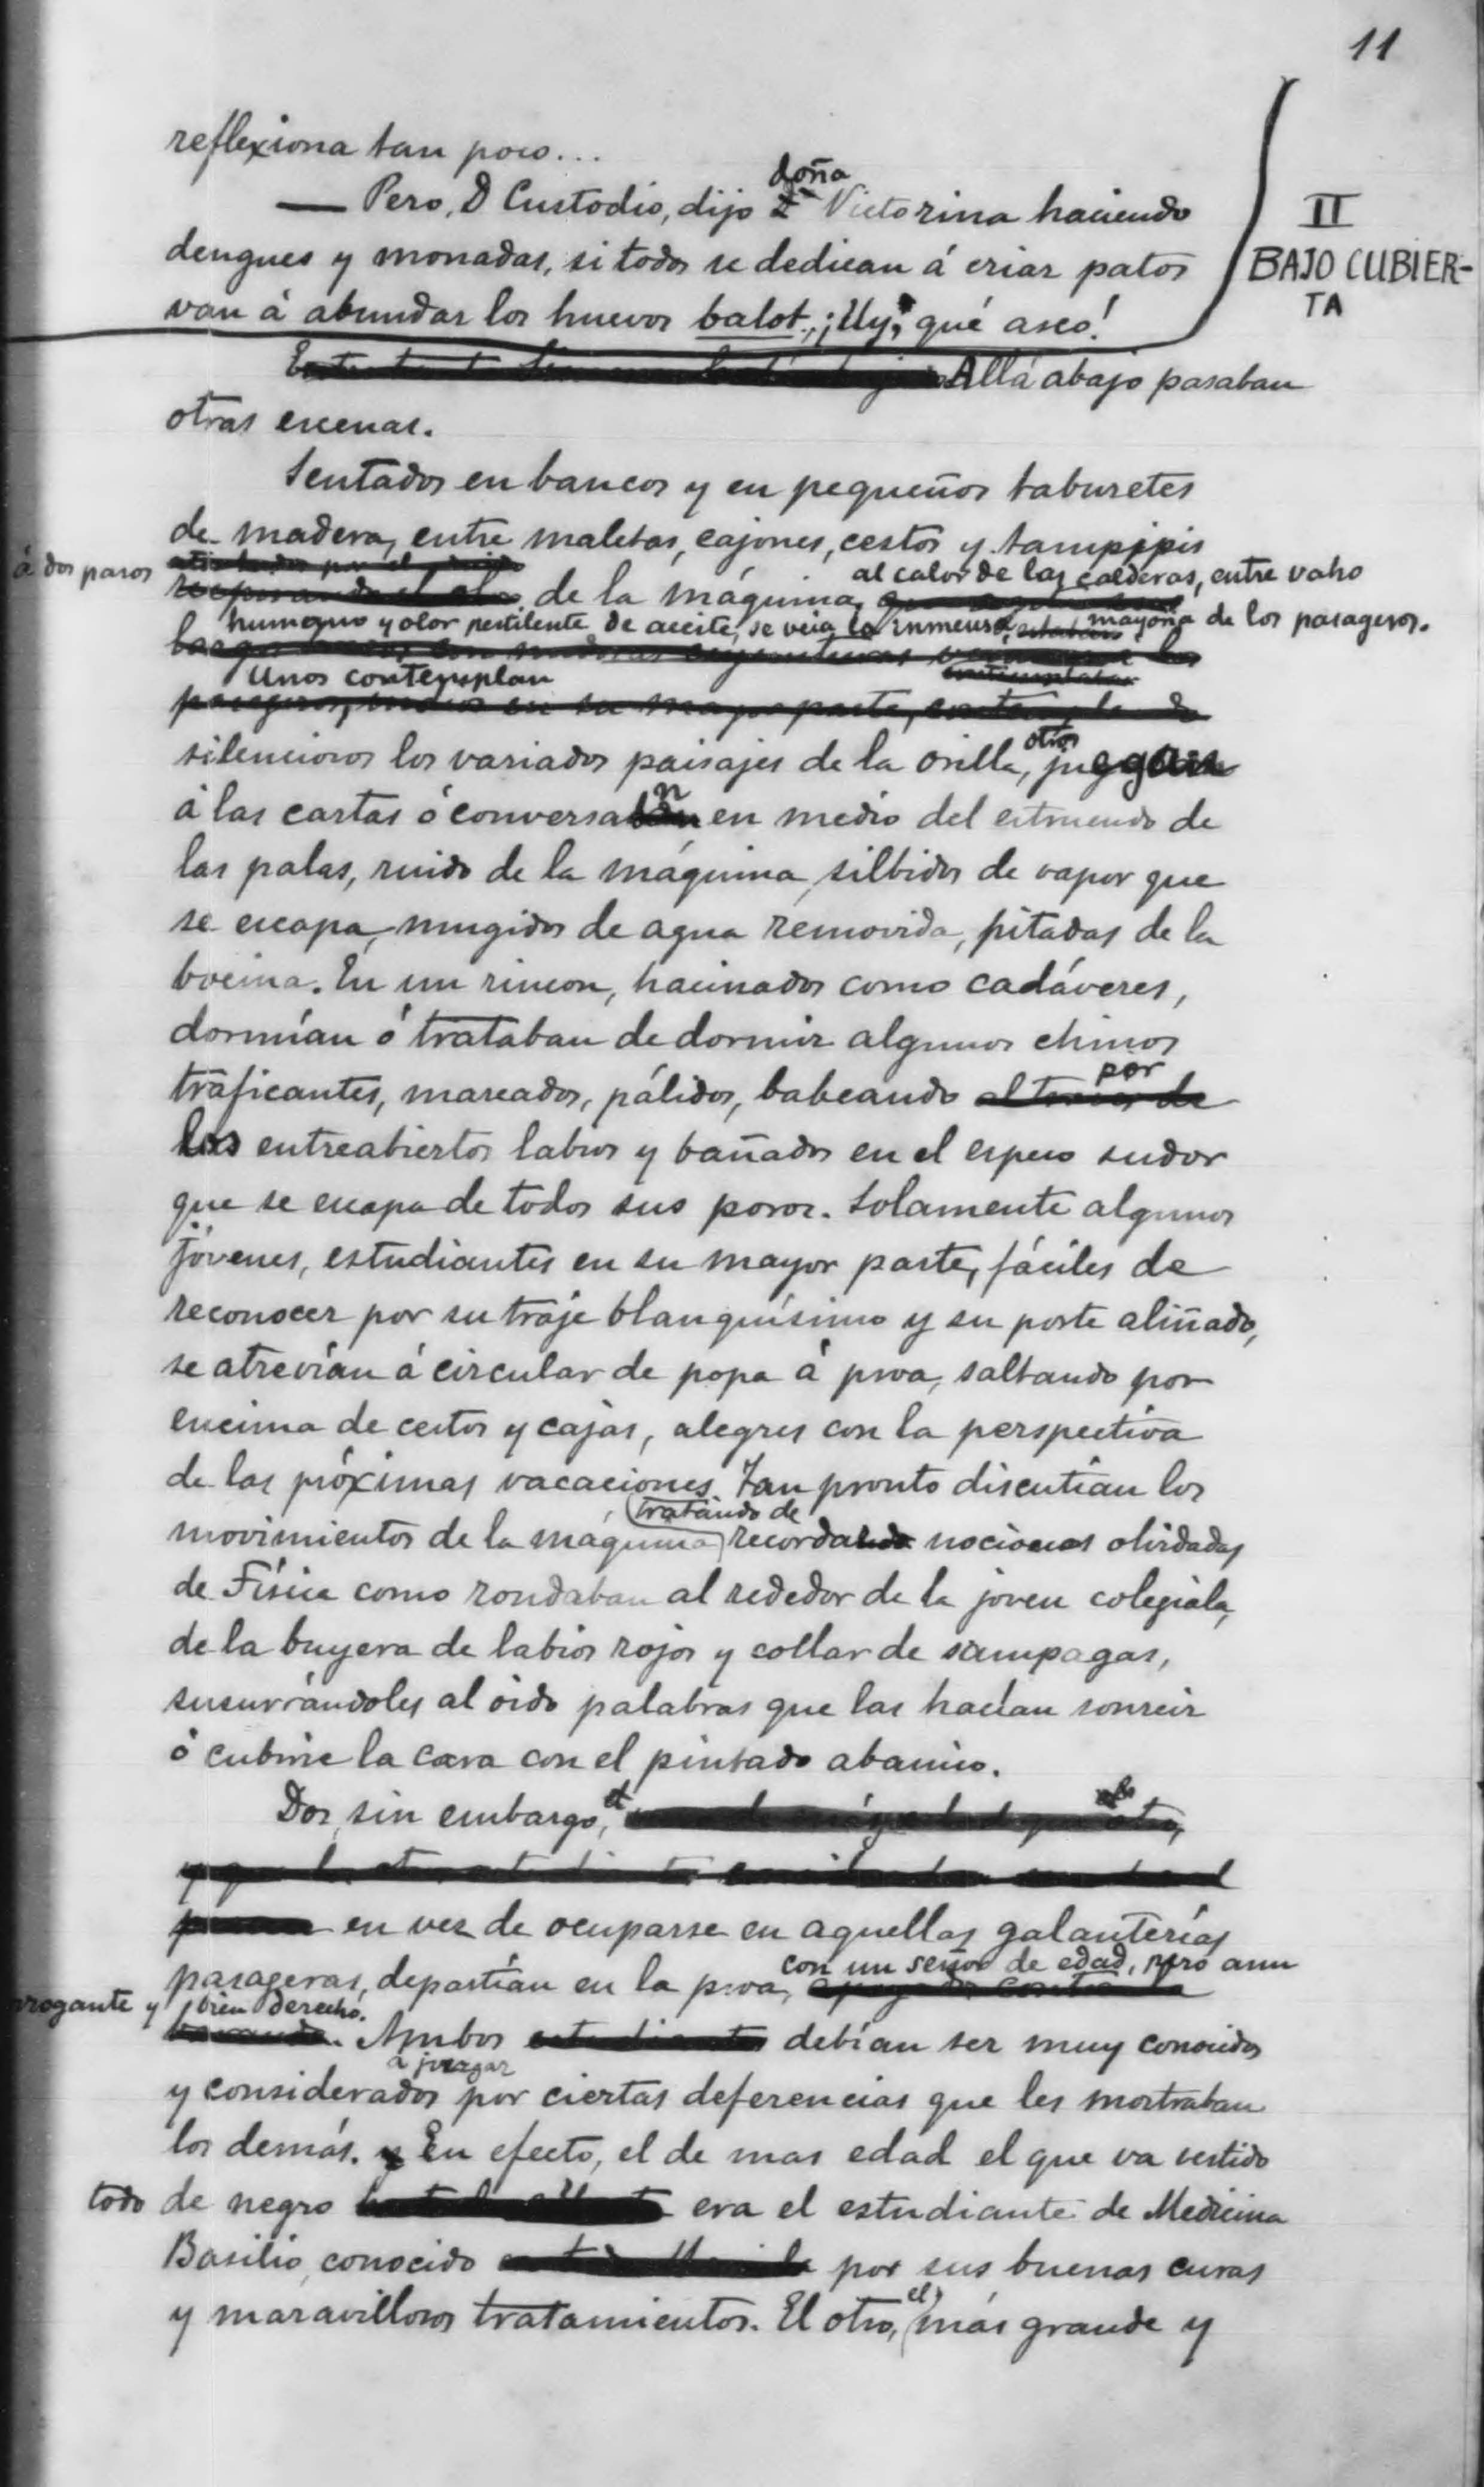 11
reflexiona tan poco...
— Pero, D Custodio, dijo doña Victorina haciendo
dengues y monadas, si todos se dedican á criar patos
van á abundar los huevos balot. ¡Uy, qué asco!
II
BAJO CUBIER-
TA
Allá abajo pasaban
otras escenas.
Sentados en bancos y en pequeños taburetes
de madera, entre maletas, cajones, cestos y tampipis
á dos pasos de la máquina, al calor de las calderas, entre vaho
humano y olor pestilente de aceite, se veía la inmensa mayoría de los pasageros.
Unos contemplan
silenciosos los variados paisajes de la orilla, otros juegan
á las cartas ó conversan en medio del estruendo de
las palas, ruido de la máquina, silbidos de vapor que
se escapa, mugidos de agua removida, pitadas de la
bocina. En un rincon, hacinados como cadáveres,
dormían ó trataban de dormir algunos chinos
traficantes, mareados, pálidos, babeando por
los entreabiertos labios y bañados en el espeso sudor
que se escapa de todos sus poros. Solamente algunos
jóvenes, estudiantes en su mayor parte, fáciles de
reconocer por su traje blanquísimo y su porte aliñado,
se atrevían á circular de popa á proa, saltando por
encima de cestos y cajas, alegres con la perspectiva
de las próximas vacaciones. Tan pronto discutían los
movimientos de la máquina tratando de recordar nociones olvidadas
de Física como rondaban al rededor de la joven colegiala,
de la buyera de labios rojos y collar de sampagas,
susurrándoles al oido palabras que las hacían sonreir
ó cubrirse la cara con el pintado abanico.
Dos, sin embargo,
en vez de ocuparse en aquellas galanterías
pasageras, departían en la proa, con un señor de edad, pero aun
arrogante y bien derecho. Ambos debían ser muy conocidos
y considerados á juzgar por ciertas deferencias que les mostraban
los demás. En efecto, el de mas edad el que va vestido
todo de negro era el estudiante de Medicina
Basilio, conocido por sus buenas curas
y maravillosos tratamientos. El otro, el más grande y